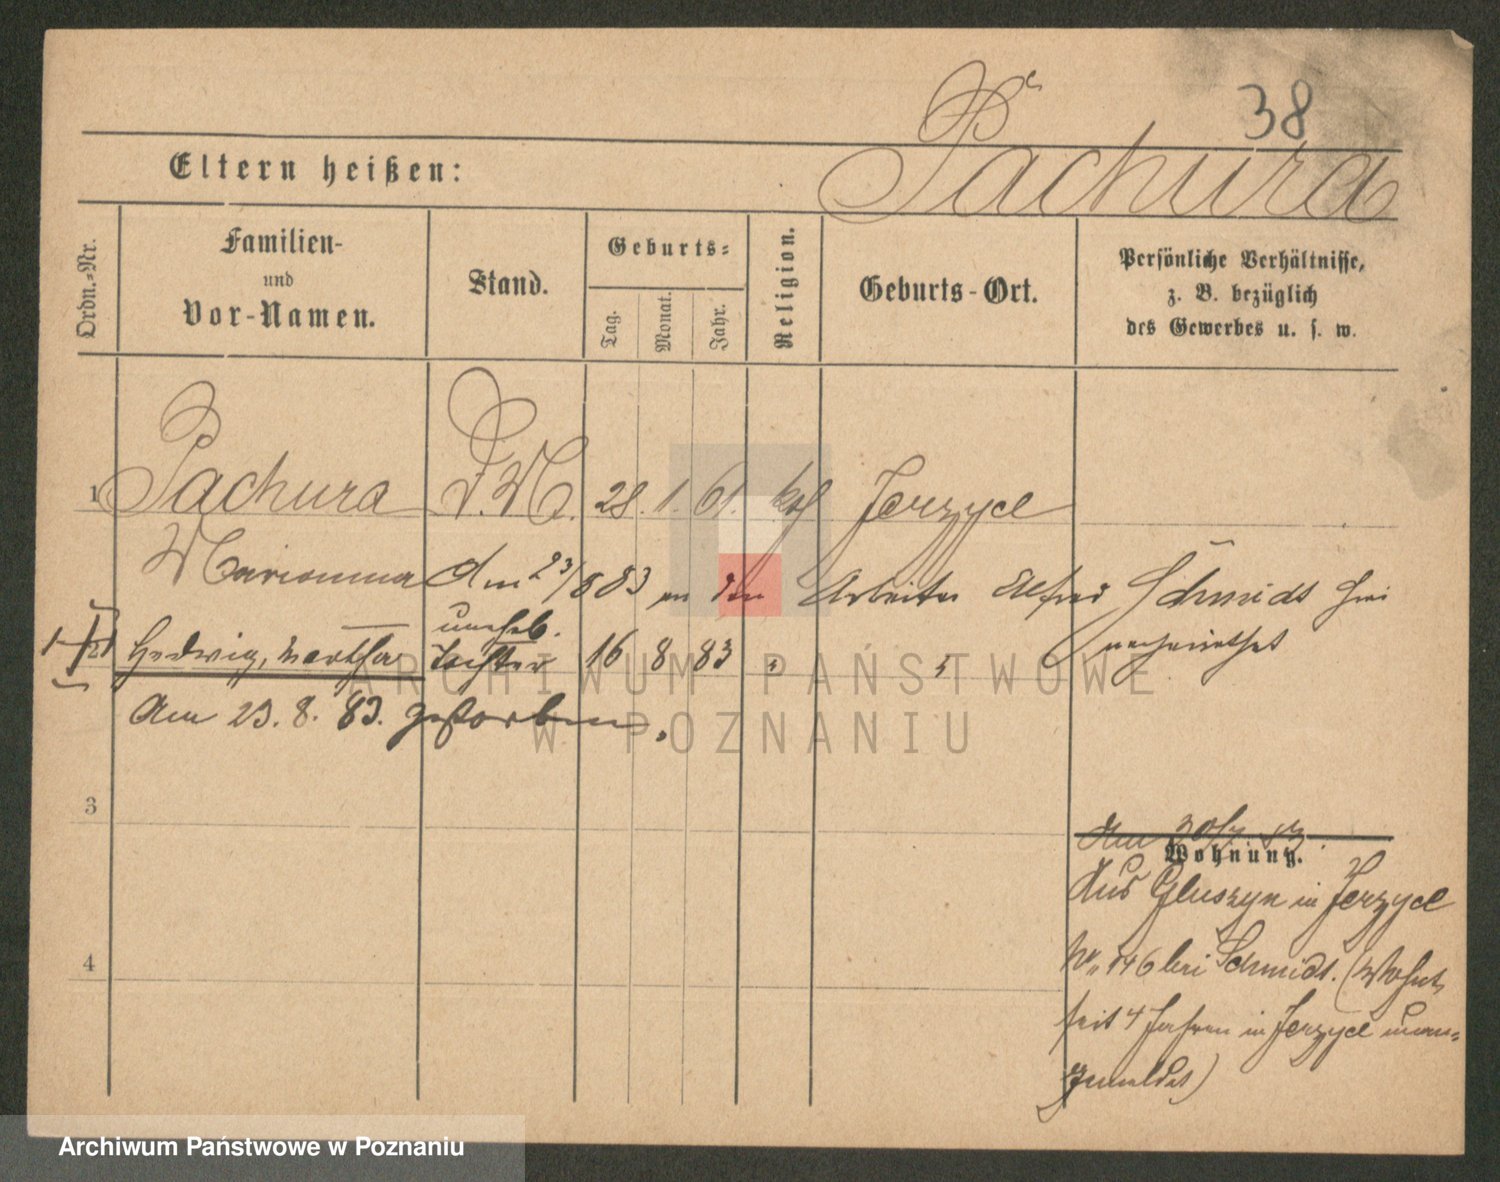 38
Pachura
Eltern heißen:
Ordn.-Nr.
Familien-
und
Vor-Namen.
Stand.
Geburts-
Tag.
Monat.
Jahr.
Religion.
Geburts-Ort.
Persönliche Verhältnisse,
z. B. bezüglich
des Gewerbes u. s. w.
1 Pachura D. M. 28. 1. 61. kath Jerzyce
Marianna Am 23/8 83 an den Arbeiter Alfred Schmidt hier
verheirathet
unehel.
2 Hedwig, Martha Tochter 16 8 83 " "
Am 23. 8. 83. gestorben.
3
Am 30/7. 83.
Wohnung.
Aus Gluszyn in Jerzyce
4
N. 146 bei Schmidt. (Wohnt
seit 4 Jahren in Jerzyce unan-
gemeldet)
ARCHIWUM PAŃSTWOWE
W POZNANIU
Archiwum Państwowe w Poznaniu